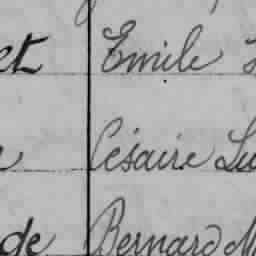 et Emile
Césaire Lu
de Bernard M